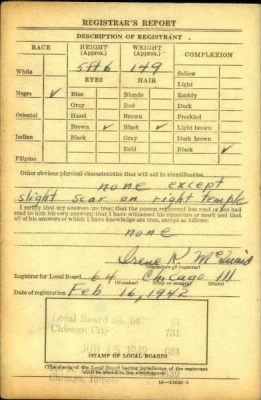 REGISTRAR'S REPORT
DESCRIPTION OF REGISTRANT
RACE HEIGHT (Approx.) WEIGHT (Approx.) COMPLEXION
5 ft 6 149
White EYES HAIR Sallow
Light
Negro ✓ Blue Blonde Ruddy
Gray Red Dark
Oriental Hazel Brown Freckled
Brown ✓ Black ✓ Light brown
Indian Black Gray Dark brown
Bald Black ✓
Filipino
Other obvious physical characteristics that will aid in identification
none except
slight scar on right temple
I certify that my answers are true; that the person registered has read or has had
read to him his own answers; that I have witnessed his signature or mark and that
all of his answers of which I have knowledge are true, except as follows:
none
Irene K
(Signature of registrar)
Registrar for Local Board 64 Chicago Ill
Date of registration Feb 16, 1942
Local Board No. 64 61
Chicago City 781
JUN 15 1942 064
(STAMP OF LOCAL BOARD)
(The stamp of the Local Board having jurisdiction of the registrant
shall be placed in the above space)
Chicago, Illinois